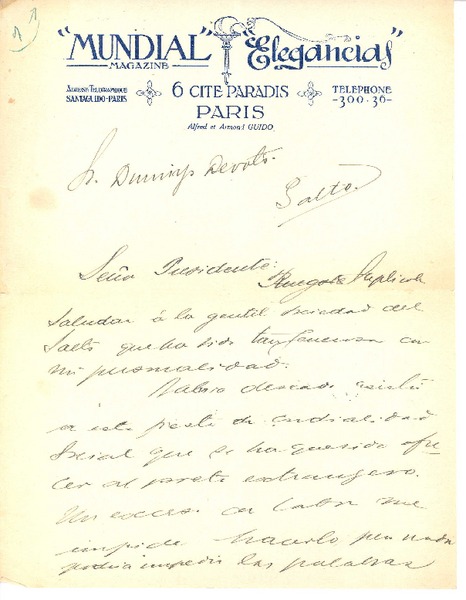 "MUNDIAL" "Elegancias"
MAGAZINE
ADRESSE TELEGRAPHIQUE
SANTAGUIDO-PARIS
6 CITE PARADIS
TELEPHONE
-300.36-
PARIS
Alfred et Armand GUIDO
Sr. Devoto.
Salto.
Señor Presidente:
Ruegole
saludar á la gentil sociedad del
Salto que ha sido tan generosa con
mi personalidad.
Habria deseado asistir
a esta fiesta de cordialidad
social que se ha querido ofre-
cer al poeta extrangero.
Un exceso de labor me
impide hacerlo pero nada
podria impedir las palabras